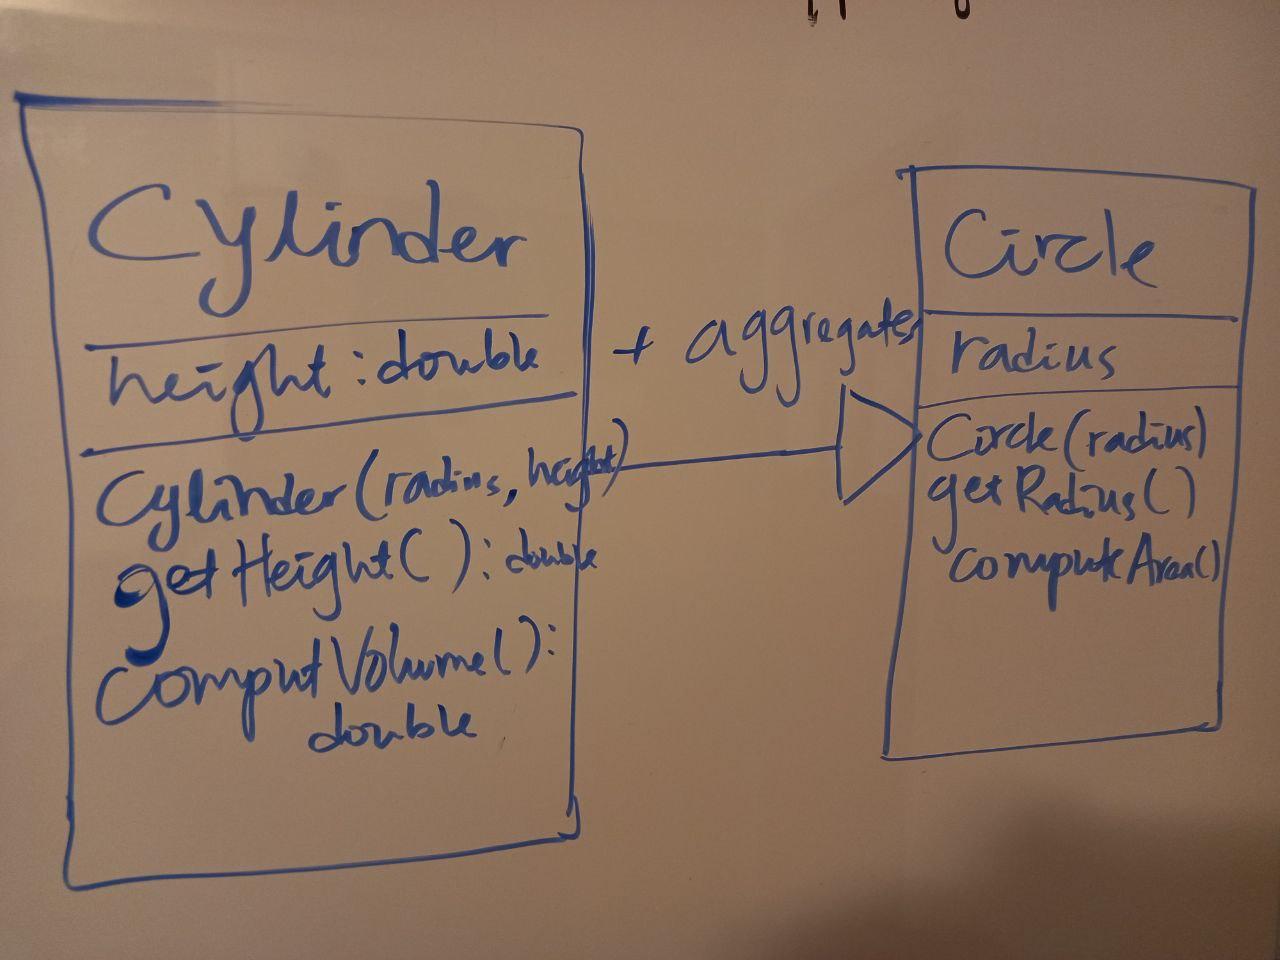 Cylinder
height : double
Cylinder(radius, height)
getHeight() : double
computVolume() :
double
+ aggregates
Circle
radius
Circle(radius)
getRadius()
computeArea()